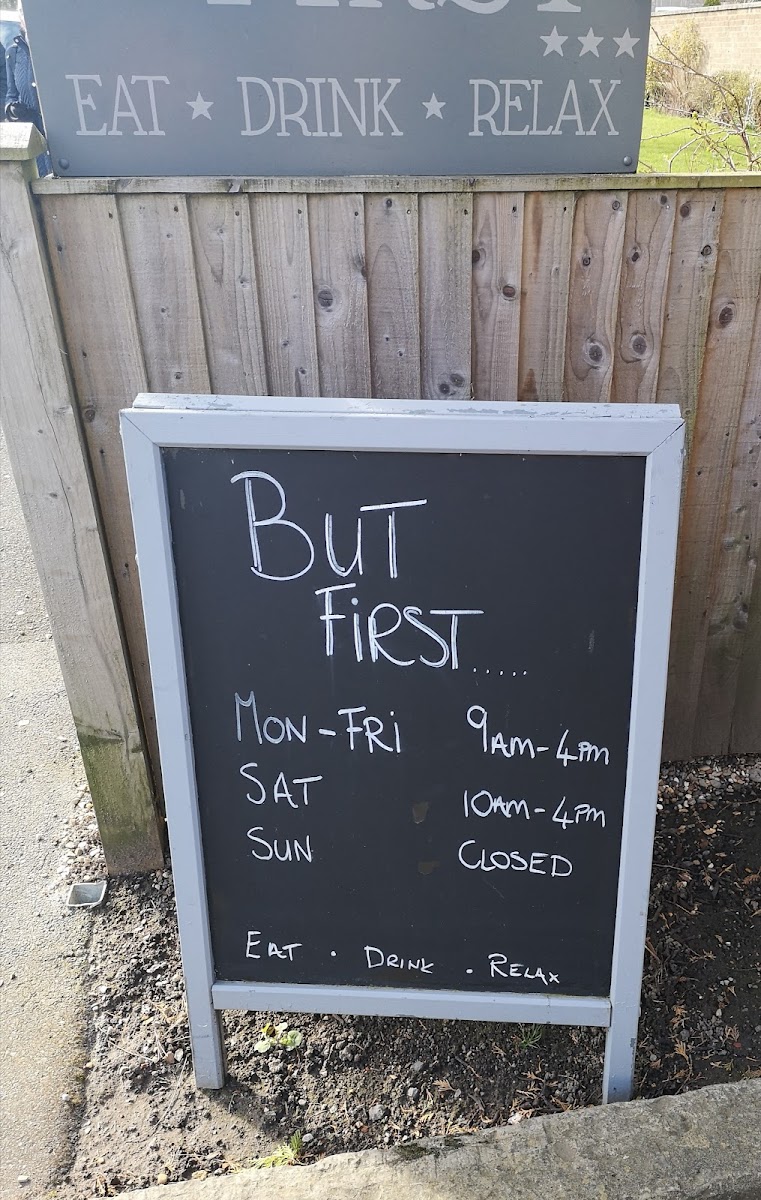 FIRST
EAT ★ DRINK ★ RELAX
BUT
FIRST.....
MON-FRI 9AM-4PM
SAT 10AM-4PM
SUN CLOSED
EAT . DRINK . RELAX